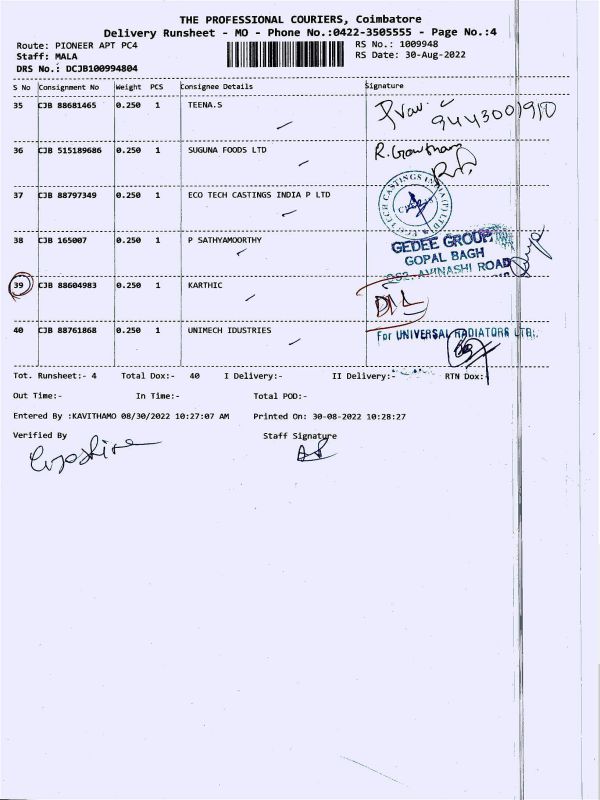 THE PROFESSIONAL COURIERS, Coimbatore
Delivery Runsheet - MO - Phone No.:0422-3505555 - Page No.:4
Route: PIONEER APT PC4 RS No.: 1009948
Staff: MALA RS Date: 30-Aug-2022
DRS No.: DCJB100994804
S No Consignment No Weight PCS Consignee Details Signature
35 CJB 88681465 0.250 1 TEENA.S
36 CJB 515189686 0.250 1 SUGUNA FOODS LTD
37 CJB 88797349 0.250 1 ECO TECH CASTINGS INDIA P LTD
38 CJB 165007 0.250 1 P SATHYAMOORTHY
GEDEE GROUP
GOPAL BAGH
AVINASHI ROAD
39 CJB 88604983 0.250 1 KARTHIC
40 CJB 88761868 0.250 1 UNIMECH IDUSTRIES
For UNIVERSAL RADIATORS LTD.
Tot. Runsheet:- 4 Total Dox:- 40 I Delivery:- II Delivery:- RTN Dox:-
Out Time:- In Time:- Total POD:-
Entered By :KAVITHAMO 08/30/2022 10:27:07 AM Printed On: 30-08-2022 10:28:27
Verified By Staff Signature